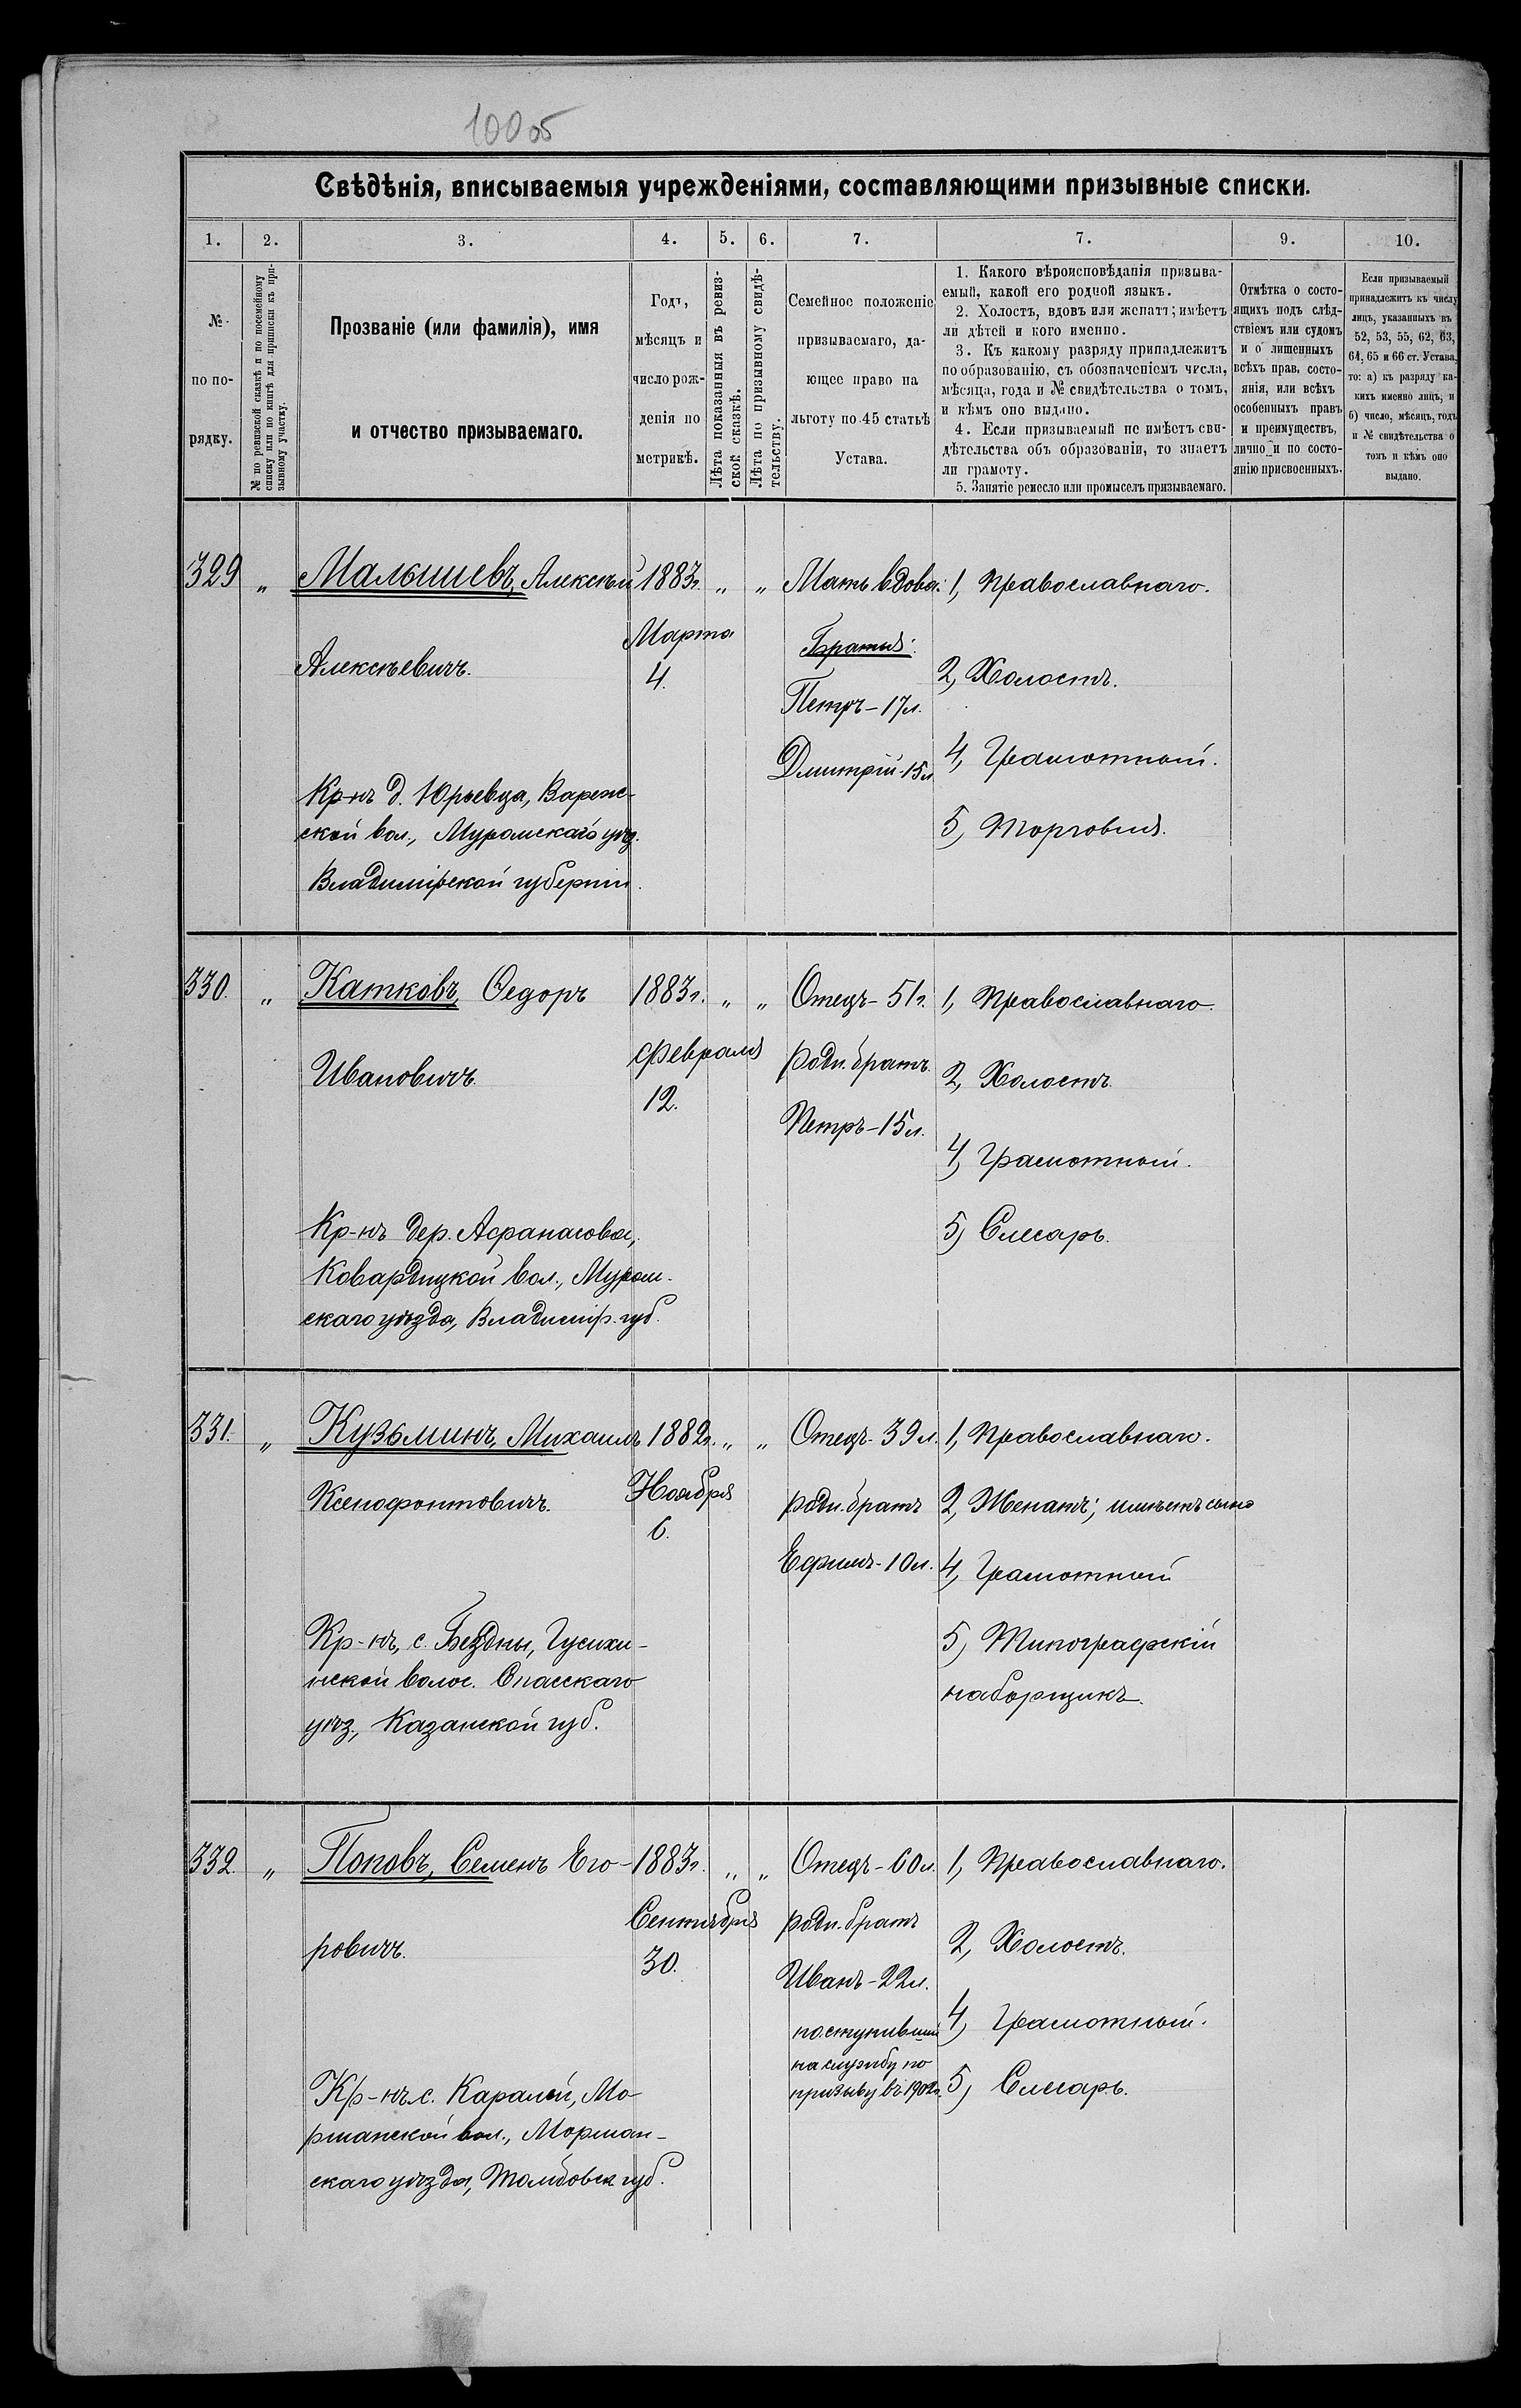 100 об
Свѣдѣнія, вписываемыя учрежденіями, составляющими призывные списки.
1. 2. 3. 4. 5. 6. 7. 7. 9. 10.
№ по по-рядку.
№ по ревизской сказкѣ и по посемейному
списку или по книгѣ для приписки къ при-
зывному участку.
Прозваніе (или фамилія), имя
и отчество призываемаго.
Годъ,
мѣсяцъ и
число рож-
денія по
метрикѣ.
Лѣта показанныя въ ревиз-
ской сказкѣ.
Лѣта по призывному свидѣ-
тельству.
Семейное положеніе
призываемаго, да-
ющее право на
льготу по 45 статьѣ
Устава.
1. Какого вѣроисповѣданія призыва-
емый, какой его родной языкъ.
2. Холостъ, вдовъ или женатъ; имѣетъ
ли дѣтей и кого именно.
3. Къ какому разряду принадлежитъ
по образованію, съ обозначеніемъ числа,
мѣсяца, года и № свидѣтельства о томъ,
и кѣмъ оно выдано.
4. Если призываемый не имѣетъ сви-
дѣтельства объ образованіи, то знаетъ
ли грамоту.
5. Занятіе ремесло или промыселъ призываемаго.
Отмѣтка о состо-
ящихъ подъ слѣд-
ствіемъ или судомъ
и о лишенныхъ
всѣхъ прав, состо-
янія, или всѣхъ
особенныхъ правъ
и преимуществъ,
лично и по состо-
янію присвоенныхъ.
Если призываемый
принадлежитъ къ числу
лицъ, указанныхъ въ
52, 53, 55, 62, 63,
64, 65 и 66 ст. Устава,
то: а) къ разряду ка-
кихъ именно лицъ, и
б) число, мѣсяцъ, годъ
и № свидѣтельства о
томъ и кѣмъ оно
выдано.
329 " Малышевъ, Алексѣй 1883г. " " Мать вдова: 1, Православнаго.
Алексѣевичъ.
Марта
4.
Братья:
Петръ - 17л.
Дмитрій - 15л
2, Холостъ.
4, Грамотный.
5, Торговля.
Кр-нъ д. Юрьевца, Вареж-
ской вол., Муромскаго уѣз.
Владимірской губерніи.
330. " Катковъ, Ѳедоръ 1883г. " " Отецъ - 51г. 1, Православнаго.
Ивановичъ.
Февраля
12.
родн. братъ
Петръ - 15л.
2, Холостъ.
4, Грамотный.
5, Слесарь.
Кр-нъ дер. Афанасова,
Ковардицкой вол., Муром-
скаго уѣзда, Владимір. губ.
331. " Кузьминъ, Михаилъ 1882г. " " Отецъ - 39л. 1, Православнаго.
Ксенофонтовичъ.
Ноября
6.
родн. братъ
Ефимъ - 10л.
2, Женатъ; имѣетъ сына
4, Грамотный
5, Типографскій
наборщикъ.
Кр-нъ, с. Бездны, Гусихи-
нской волос. Спасскаго
уѣз., Казанской губ.
332 " Поповъ, Семенъ Его- 1883г. " " Отецъ - 60л. 1, Православнаго.
ровичъ.
Сентября
30.
родн. братъ
Иванъ - 22л.
поступивший
на службу по
призыву въ 1902г.
2, Холостъ.
4, Грамотный.
5, Слесарь.
Кр-нъ с. Каралей, Мо-
ршанской вол., Моршан-
скаго уѣзда, Тамбовск. губ.